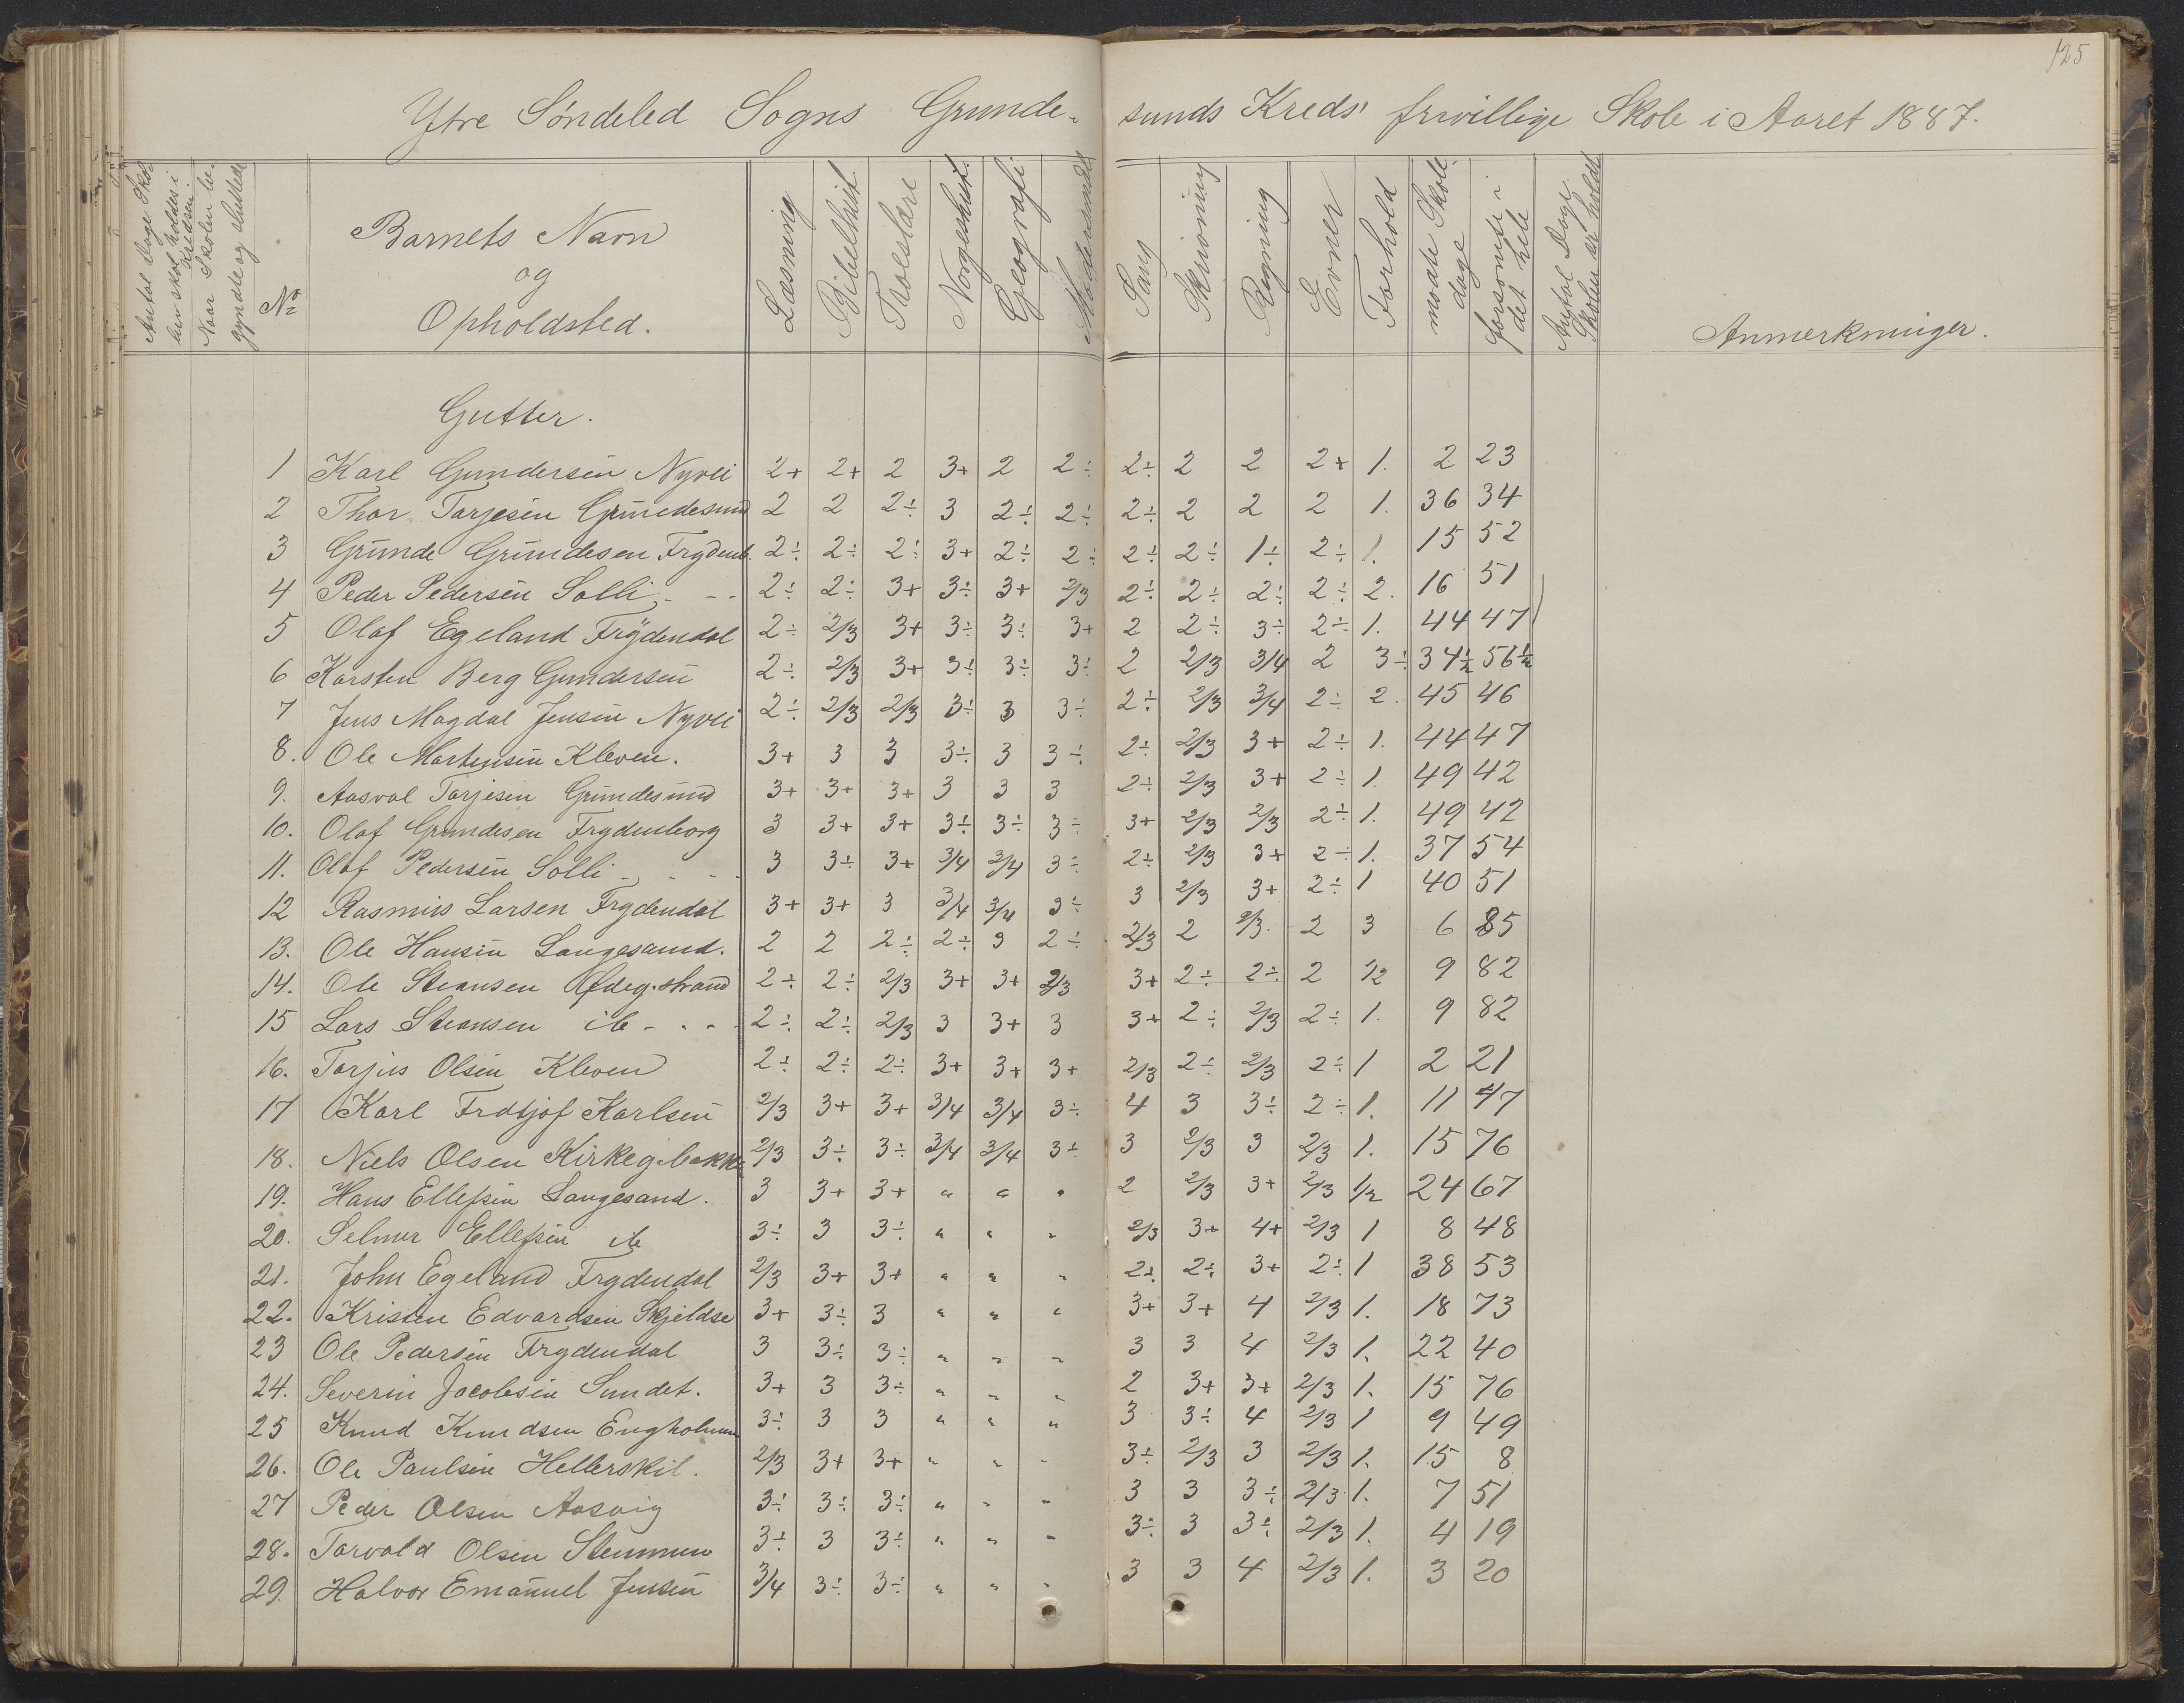 125
Ytre Søndeled Sogns Grunde- sunds Kreds' frivillige Skole i Aaret 1887.
Antal Dage Skolen skal holdes i Kredsen.
Naar Skolen begyndte og sluttede
No
Barnets Navn
og
Opholdsted.
Læsning
Bibelhist
Troeslære
Norgeshist.
Geografi
Modersmaal
Sang
Skrivning
Regning
Evner
Forhold
mødte Skoledage
forsømte i det hele
Antal Dage Skolen er holdt
Anmerkninger.
Gutter.
1 Karl Gundersen Nyvei 2+ 2+ 2 3+ 2 2÷ 2÷ 2 2 2+ 1. 2 23
2 Thor Tarjesen Grundesund 2 2 2÷ 3 2÷ 2÷ 2÷ 2 2 2 1. 36 34
3 Grunde Grundesen Frydenb. 2÷ 2÷ 2÷ 3+ 2÷ 2÷ 2÷ 2÷ 1÷ 2÷ 1. 15 52
4 Peder Pedersen Solli - - - 2÷ 2÷ 3+ 3÷ 3+ 2/3 2÷ 2÷ 2÷ 2÷ 2. 16 51
5 Olaf Egeland Frydendal 2÷ 2/3 3+ 3÷ 3÷ 3+ 2 2÷ 3÷ 2÷ 1. 44 47
6 Karsten Berg Gundersen 2÷ 2/3 3+ 3÷ 3÷ 3÷ 2 2/3 3/4 2 3÷ 34½ 56½
7 Jens Magdal Jensen Nyvei 2÷ 2/3 2/3 3÷ 3 3÷ 2÷ 2/3 3/4 2÷ 2. 45 46
8. Ole Martensen Kleven. 3+ 3 3 3÷ 3 3÷ 2÷ 2/3 3+ 2÷ 1. 44 47
9. Aasval Tarjesen Grundesund 3+ 3+ 3+ 3 3 3 2÷ 2/3 3+ 2÷ 1. 49 42
10. Olaf Grundesen Frydenborg 3 3+ 3+ 3÷ 3÷ 3÷ 3+ 2/3 2/3 2÷ 1. 49 42
11. Olaf Pedersen Solli - - - - 3 3÷ 3+ 3/4 3/4 3÷ 2÷ 2/3 3+ 2÷ 1. 37 54
12 Rasmus Larsen Frydendal 3+ 3+ 3 3/4 3/4 3÷ 3 2/3 3+ 2÷ 1 40 51
13. Ole Hansen Langesand. 2 2 2÷ 2÷ 3 2÷ 2/3 2 2/3. 2 3 6 85
14. Ole Steansen Ødeg.strand 2÷ 2÷ 2/3 3+ 3+ 2/3 3+ 2÷ 2÷ 2 1/2 9 82
15 Lars Steansen ib - - - - 2÷ 2÷ 2/3 3 3+ 3 3+ 2÷ 2/3 2÷ 1. 9 82
16. Tarjus Olsen Kleven 2÷ 2÷ 2÷ 3+ 3+ 3+ 2/3 2÷ 2/3 2÷ 1 2 21
17 Karl Frdtjof Karlsen 2/3 3+ 3+ 3/4 3/4 3÷ 4 3 3÷ 2÷ 1. 11 47
18. Niels Olsen Kirkeg.bakke 2/3 3÷ 3÷ 3/4 3/4 3÷ 3 2/3 3 2/3 1. 15 76
19. Hans Ellefsen Langesand. 3 3+ 3+ " " " 2 2/3 3+ 2/3 1/2 24 67
20. Selmer Ellefsen ib 3÷ 3 3÷ " " " 2/3 3+ 4+ 2/3 1 8 48
21. John Egeland Frydendal 2/3 3+ 3+ " " " 2÷ 2÷ 3+ 2÷ 1 38 53
22. Kristen Edvardsen Skjeldse 3+ 3÷ 3 " " " 3+ 3+ 4 2/3 1. 18 73
23 Ole Pedersen Frydendal 3 3÷ 3÷ " " " 3 3 4 2/3 1. 22 40
24. Severin Jacobsen Sundet. 3+ 3 3÷ " " " 2 3+ 3+ 2/3 1. 15 76
25 Knud Knudsen Engholmen 3÷ 3 3 " " " 3 3÷ 4 2/3 1 9 49
26. Ole Paulsen Hellerskil. 2/3 3+ 3+ " " " 3÷ 2/3 3 2/3 1. 15 8
27 Peder Olsen Aasvig 3÷ 3÷ 3÷ " " " 3 3 3÷ 2/3 1. 7 51
28. Tarvald Olsen Stemmen 3÷ 3 3÷ " " " 3÷ 3 3÷ 2/3 1. 4 19
29. Halvor Emanuel Jensen 3/4 3÷ 3÷ " " " 3 3 4 2/3 1. 3 20